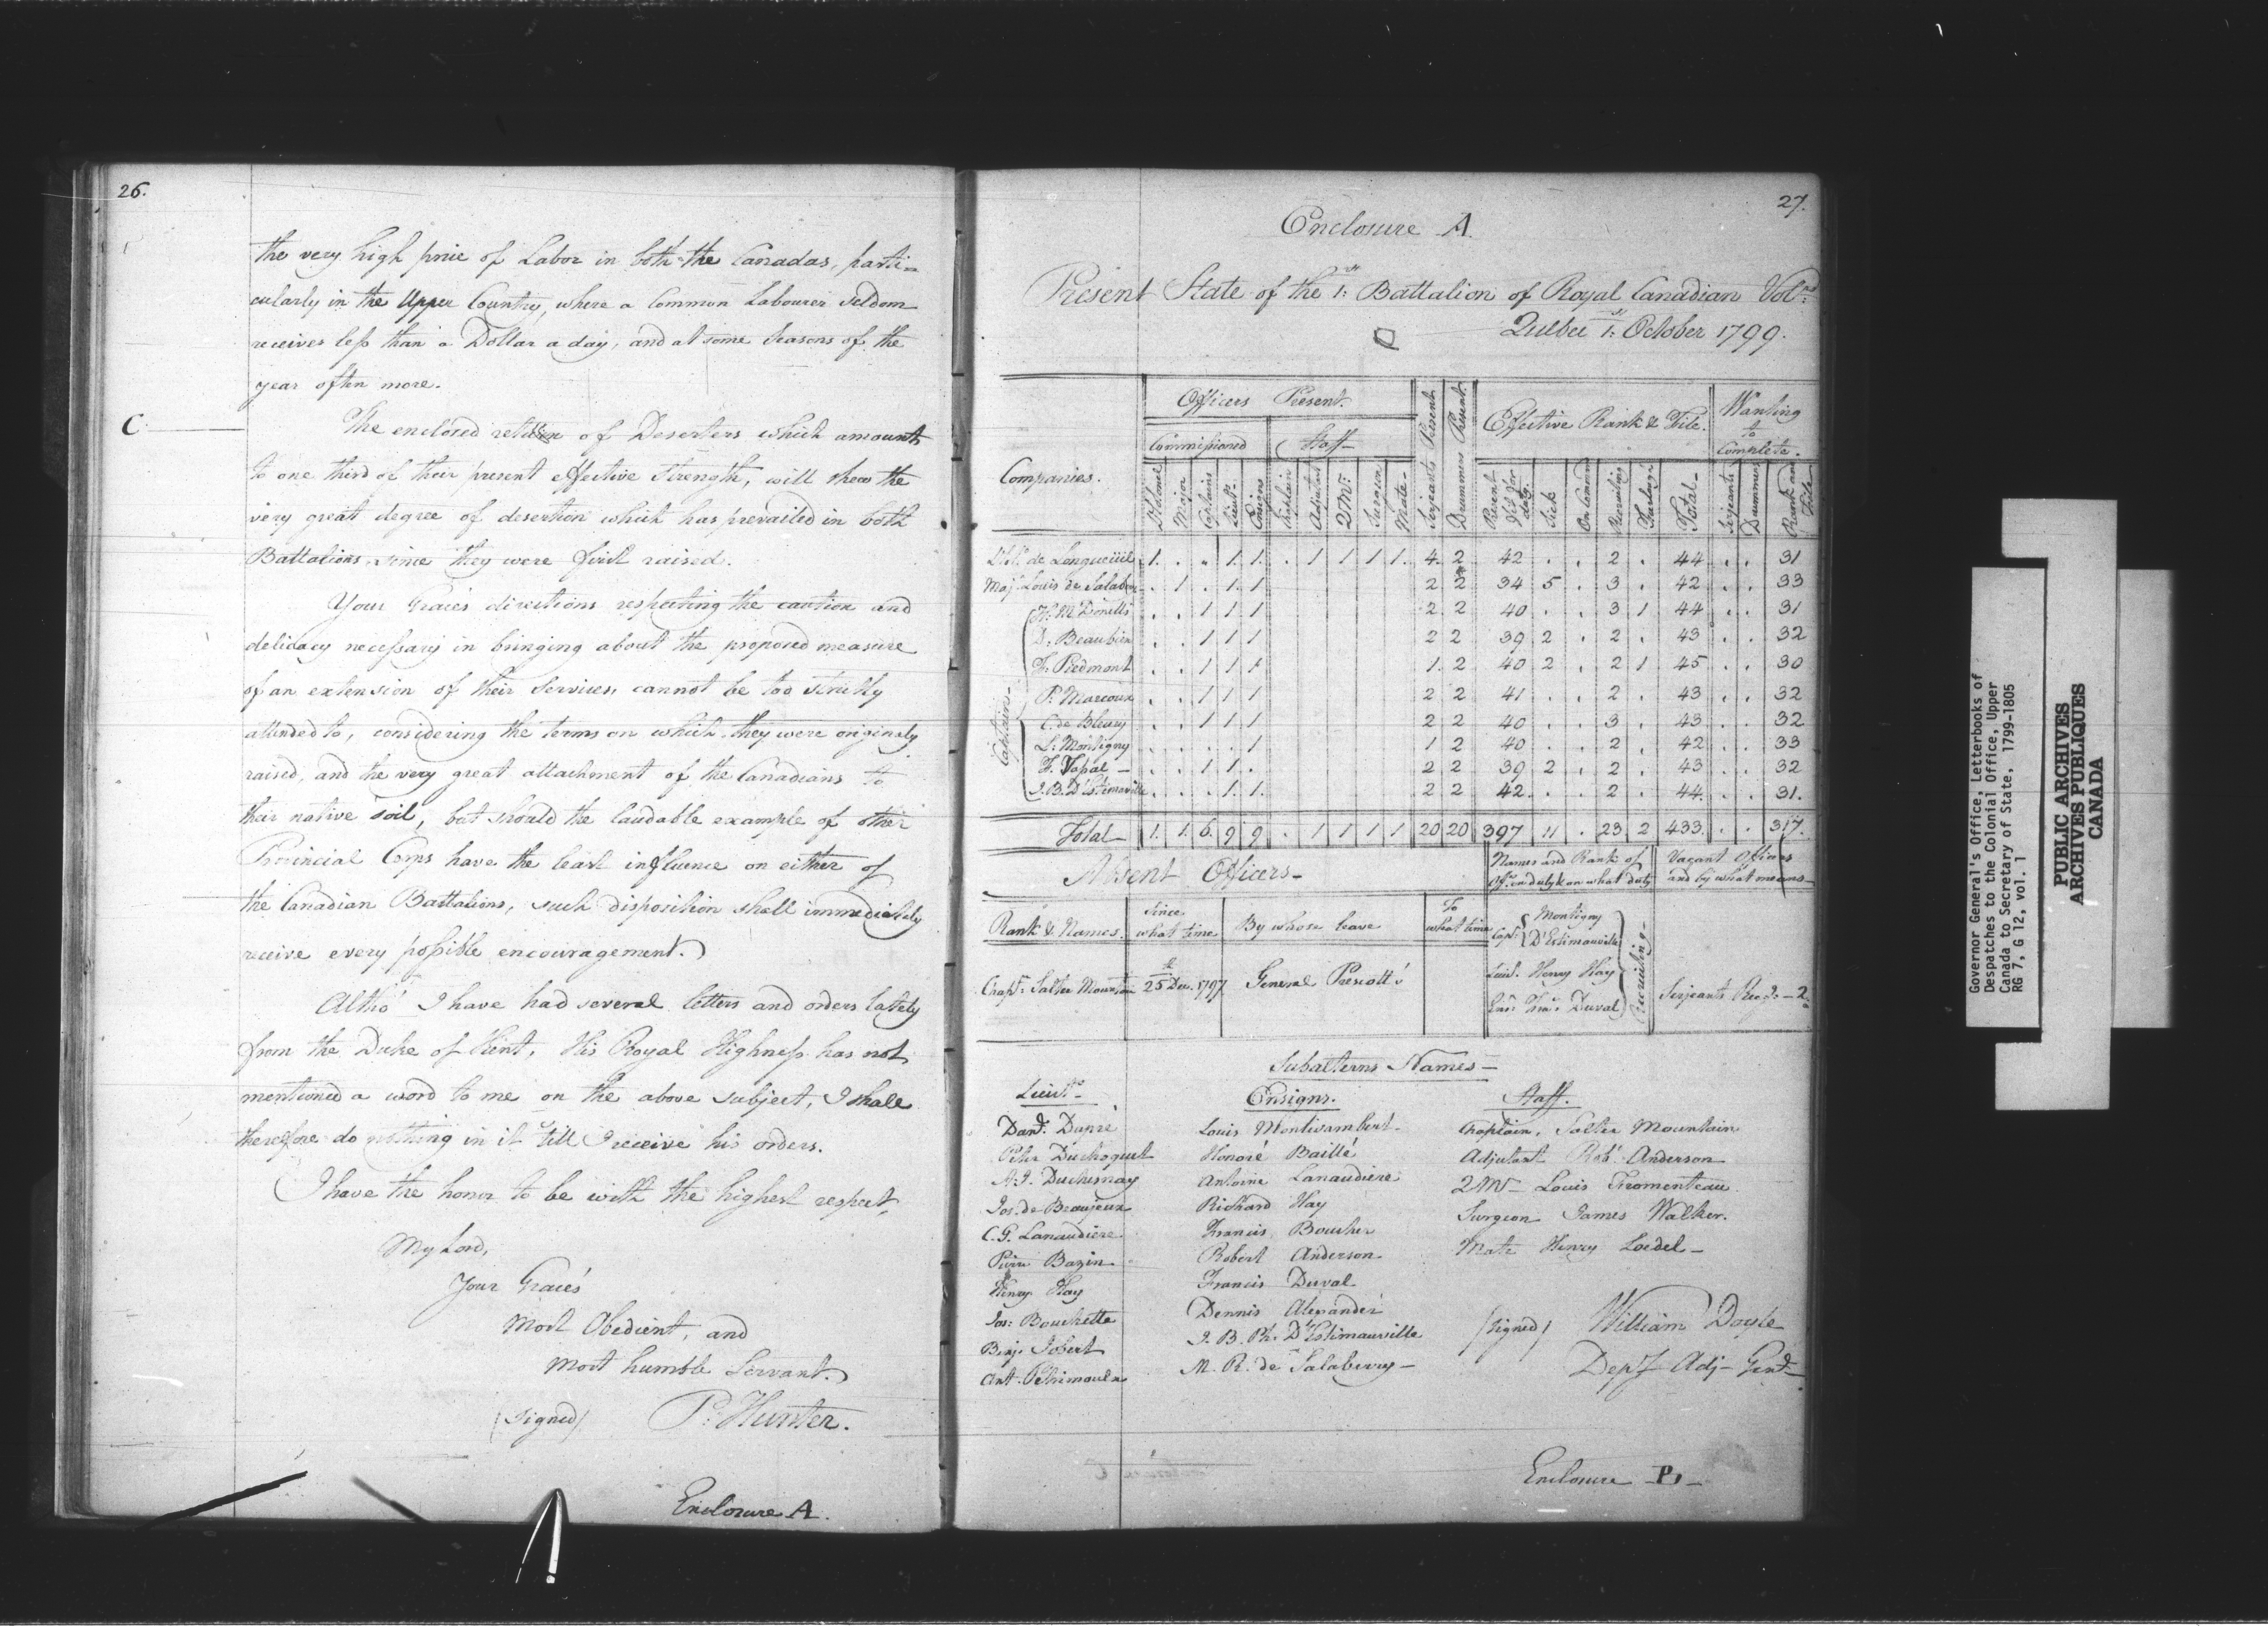 26.
the very high price of Labor in both the Canadas, parti=
cularly in the Upper Country, where a Common Labourer seldom
receives less than a Dollar a day, and at some Seasons of the
year often more.
C.
The enclosed return of Deserters which amounts
to one third of their present effective Strength, will shew the
very great degree of desertion which has prevailed in both
Battalions, since they were first raised.
Your Grace's directions respecting the caution and
delicacy necessary in bringing about the proposed measure
of an extension of their Services, cannot be too strictly
attended to, considering the terms on which they were originaly
raised, and the very great attachment of the Canadians to
their native soil, but should the laudable example of other
Provincial Corps have the least influence on either of
the Canadian Battalions, such disposition shall immediately
receive every possible encouragement.
Altho' I have had several letters and orders lately
from the Duke of Kent, His Royal Highness has not
mentioned a word to me on the above subject, I shall
therefore do nothing in it till I receive his orders.
I have the honor to be with the highest respect,
My Lord,
Your Grace's
Most Obedient, and
Most humble Servant.
(signed) P: Hunter.
Enclosure A.
27.
Enclosure A.
Present State of the 1st Battalion of Royal Canadian Volrs
Quebec 1st October 1799.
Companies. Officers Present. Serjeants Present Drummers Present. Effective Rank & File. Wanting to Complete.
Commissioned Staff
Lt Colonel Major Captains Lieuts Ensigns Chaplain Adjutant 2 Mr Surgeon Mate Present fit for duty. Sick On Command Recruiting Furlough Total Serjeants Drummers Rank and File
Lt Cl de Longueüil 1. . . 1. 1. . 1 1 1 1. 4. 2 42 . . 2 . 44 . . 31
Maj. Louis de Salaberry . 1 . 1. 1 2 2 34 5 . 3 . 42 . . 33
Captains
H: McDonell's . . 1 1 1 2 2 40 . . 3 1 44 . . 31
D. Beaubien . . 1 1 1 2 2 39 2 . 2 . 43 . . 32
F: Piedmont . . 1 1 1 1. 2 40 2 . 2 1 45 . . 30
P: Marcoux . . 1 1 1 2 2 41 . . 2 . 43 . . 32
C. de Bleury . . 1 1 1 2 2 40 . . 3 . 43 . . 32
L: Montigny . . . . 1 1 2 40 . . 2 . 42 . . 33
F. Vassal . . 1 1 . 2 2 39 2 . 2 . 43 . . 32
J. B. D'Estimauville . . . 1. 1. 2 2 42 . . 2 . 44 . . 31.
Total 1. 1. 6. 9 9 . 1 1 1 1 20 20 397 11 . 23 2 433. . . 317.
Absent Officers
Names and Rank of Offrs on duty & on what duty
Vacant Officers and by what means
Rank & Names. Since what time By whose leave To what time
Chapn Salter Mountain 25th Dec. 1797 General Prescott's
Capts Montigny
D'Estimauville
Lieut. Henry Hay
Ensn Fras Duval
Recruiting
Serjeants 2
Subalterns Names
Lieuts
Danl Dupré
Peter Duchoquet
A. J. Duchesnay
Jos. de Beaujeux
C. G. Lanaudiere
Pierre Bazin
Henry Hay
Jos: Bouchette
Benj. Jobert
Ant.
Ensigns.
Louis Montizambert
Honoré Baillé
Antoine Lanaudiere
Richard Hay
Francis Boucher
Robert Anderson
Francis Duval
Dennis Alexander
J. B. Ph. D'Estimauville
M. R. de Salaberry
Staff.
Chaplain, Salter Mountain
Adjutant Robt Anderson
2 Mr Louis Fromenteau
Surgeon James Walker.
Mate Henry Loedel
(signed) William Doyle
Depy Adj Genl
Enclosure B
Governor General's Office, Letterbooks of
Despatches to the Colonial Office, Upper
Canada to Secretary of State, 1799-1805
RG 7, G 12, vol. 1
PUBLIC ARCHIVES
ARCHIVES PUBLIQUES
CANADA